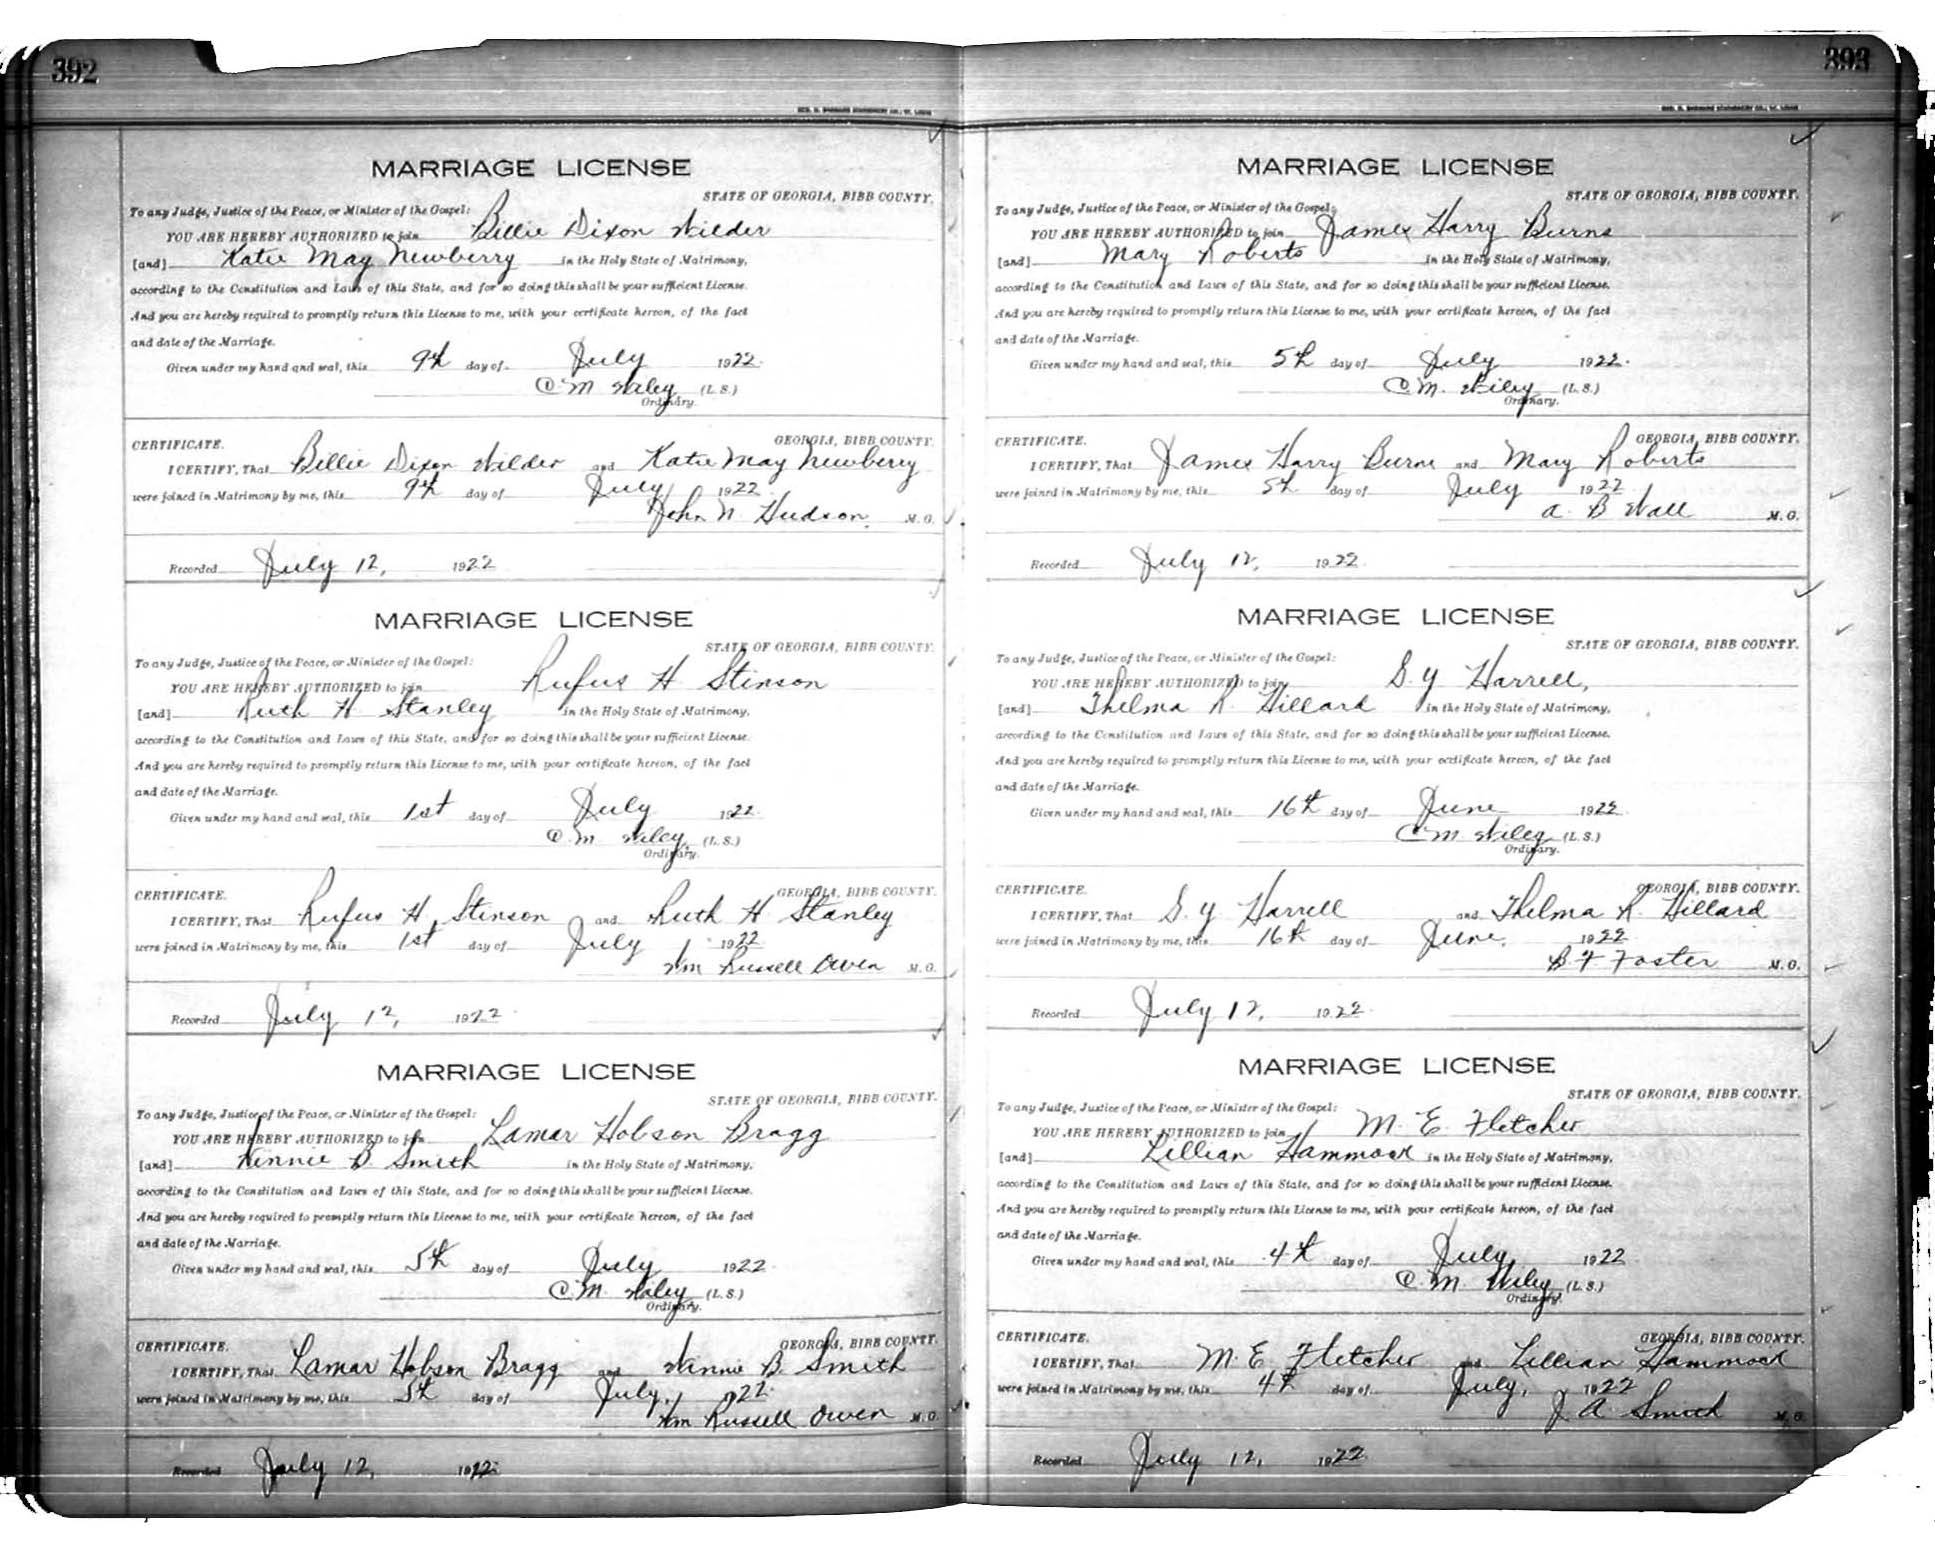 392
GEO. D. BARNARD STATIONERY CO., ST. LOUIS
MARRIAGE LICENSE
STATE OF GEORGIA, BIBB COUNTY.
To any Judge, Justice of the Peace, or Minister of the Gospel:
YOU ARE HEREBY AUTHORIZED to join Billie Dixon Wilder
[and] Katie May Newberry in the Holy State of Matrimony,
according to the Constitution and Laws of this State, and for so doing this shall be your sufficient License.
And you are hereby required to promptly return this License to me, with your certificate hereon, of the fact
and date of the Marriage.
Given under my hand and seal, this 9th day of July 1922.
C. M. Wiley (L.S.)
Ordinary.
CERTIFICATE. GEORGIA, BIBB COUNTY.
I CERTIFY, That Billie Dixon Wilder and Katie May Newberry
were joined in Matrimony by me, this 9th day of July 1922.
John N Hudson. M.G.
Recorded July 12, 1922
MARRIAGE LICENSE
STATE OF GEORGIA, BIBB COUNTY.
To any Judge, Justice of the Peace, or Minister of the Gospel:
YOU ARE HEREBY AUTHORIZED to join Rufus H Stinson
[and] Ruth H Stanley in the Holy State of Matrimony,
according to the Constitution and Laws of this State, and for so doing this shall be your sufficient License.
And you are hereby required to promptly return this License to me, with your certificate hereon, of the fact
and date of the Marriage.
Given under my hand and seal, this 1st day of July 1922.
C. M. Wiley (L.S.)
Ordinary.
CERTIFICATE. GEORGIA, BIBB COUNTY.
I CERTIFY, That Rufus H Stinson and Ruth H Stanley
were joined in Matrimony by me, this 1st day of July 1922
Wm Russell Owen M.G.
Recorded July 12, 1922
MARRIAGE LICENSE
STATE OF GEORGIA, BIBB COUNTY.
To any Judge, Justice of the Peace, or Minister of the Gospel:
YOU ARE HEREBY AUTHORIZED to join Lamar Hobson Bragg
[and] Winnie B. Smith in the Holy State of Matrimony,
according to the Constitution and Laws of this State, and for so doing this shall be your sufficient License.
And you are hereby required to promptly return this License to me, with your certificate hereon, of the fact
and date of the Marriage.
Given under my hand and seal, this 5th day of July 1922
C. M. Wiley (L.S.)
Ordinary.
CERTIFICATE. GEORGIA, BIBB COUNTY.
I CERTIFY, That Lamar Hobson Bragg and Winnie B. Smith
were joined in Matrimony by me, this 5th day of July, 1922
Wm Russell Owen M.G.
Recorded July 12, 1922
393
GEO. D. BARNARD STATIONERY CO., ST. LOUIS
MARRIAGE LICENSE
STATE OF GEORGIA, BIBB COUNTY.
To any Judge, Justice of the Peace, or Minister of the Gospel:
YOU ARE HEREBY AUTHORIZED to join James Harry Burns
[and] Mary Roberts in the Holy State of Matrimony,
according to the Constitution and Laws of this State, and for so doing this shall be your sufficient License.
And you are hereby required to promptly return this License to me, with your certificate hereon, of the fact
and date of the Marriage.
Given under my hand and seal, this 5th day of July 1922.
C. M. Wiley (L.S.)
Ordinary.
CERTIFICATE. GEORGIA, BIBB COUNTY.
I CERTIFY, That James Harry Burns and Mary Roberts
were joined in Matrimony by me, this 5th day of July 1922
A. B Wall M.G.
Recorded July 12, 1922
MARRIAGE LICENSE
STATE OF GEORGIA, BIBB COUNTY.
To any Judge, Justice of the Peace, or Minister of the Gospel:
YOU ARE HEREBY AUTHORIZED to join S. Y Harrell,
[and] Thelma R. Hillard in the Holy State of Matrimony,
according to the Constitution and Laws of this State, and for so doing this shall be your sufficient License.
And you are hereby required to promptly return this License to me, with your certificate hereon, of the fact
and date of the Marriage.
Given under my hand and seal, this 16th day of June 1922
C. M. Wiley (L.S.)
Ordinary.
CERTIFICATE. GEORGIA, BIBB COUNTY.
I CERTIFY, That S. Y Harrell and Thelma R. Hillard
were joined in Matrimony by me, this 16th day of June, 1922
B F Foster M.G.
Recorded July 12, 1922
MARRIAGE LICENSE
STATE OF GEORGIA, BIBB COUNTY.
To any Judge, Justice of the Peace, or Minister of the Gospel:
YOU ARE HEREBY AUTHORIZED to join M. E. Fletcher
[and] Lillian Hammock in the Holy State of Matrimony,
according to the Constitution and Laws of this State, and for so doing this shall be your sufficient License.
And you are hereby required to promptly return this License to me, with your certificate hereon, of the fact
and date of the Marriage.
Given under my hand and seal, this 4th day of July, 1922
C. M. Wiley (L.S.)
Ordinary.
CERTIFICATE. GEORGIA, BIBB COUNTY.
I CERTIFY, That M. E Fletcher and Lillian Hammock
were joined in Matrimony by me, this 4th day of July, 1922
J. A. Smith M.G.
Recorded July 12, 1922